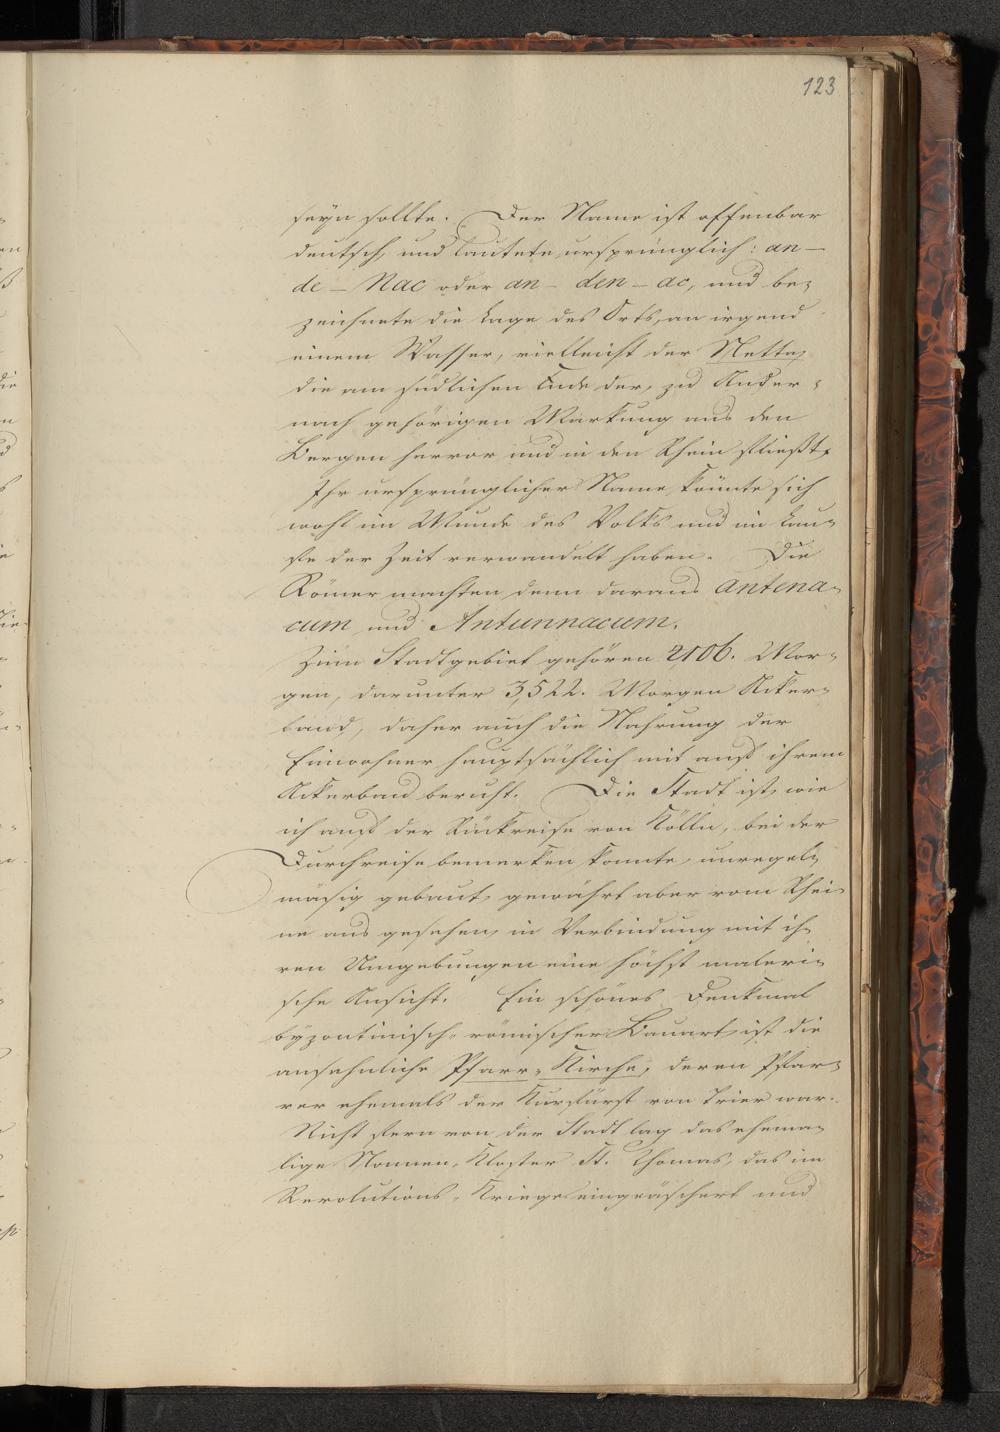 123
seyn sollte. Der Name ist offenbar
deutsch, und lautete ursprünglich: an-
de-Nac oder an-den-ac, und be-
zeichnete die Lage des Orts, an irgend
einem Wasser, vielleicht der Nette,
die am südlichen Ende der, zu Ander-
nach gehörigen Markung aus den
Bergen hervor und in den Rhein fließt.
Ihr ursprünglicher Name, könnte sich
wohl im Munde des Volks und im Lau-
fe der Zeit verwandelt haben. Die
Römer machten denn daraus Antena-
cum und Antunnacum.
Zum Stadtgebiet gehören 4106. Mor-
gen, darunter 3,522. Morgen Acker-
land, daher auch die Nahrung der
Einwohner hauptsächlich mit auf ihrem
Ackerbau beruht. Die Stadt ist, wie
ich auf der Rückreise von Kölln, bei der
Durchreise bemerken konnte, unregel-
mäsig gebaut, gewährt aber vom Rhei-
ne aus gesehen, in Verbindung mit ih-
ren Umgebungen eine höchst maleri-
sche Ansicht. Ein schönes Denkmal
byzontinisch-römischer Bauart, ist die
ansehnliche Pfarr-Kirche, deren Pfar-
rer ehemals der Kurfürst von Trier war.
Nicht fern von der Stadt lag das ehema-
lige Nonnen-Kloster St. Thomas, das im
Revolutions-Kriege eingeäschert und